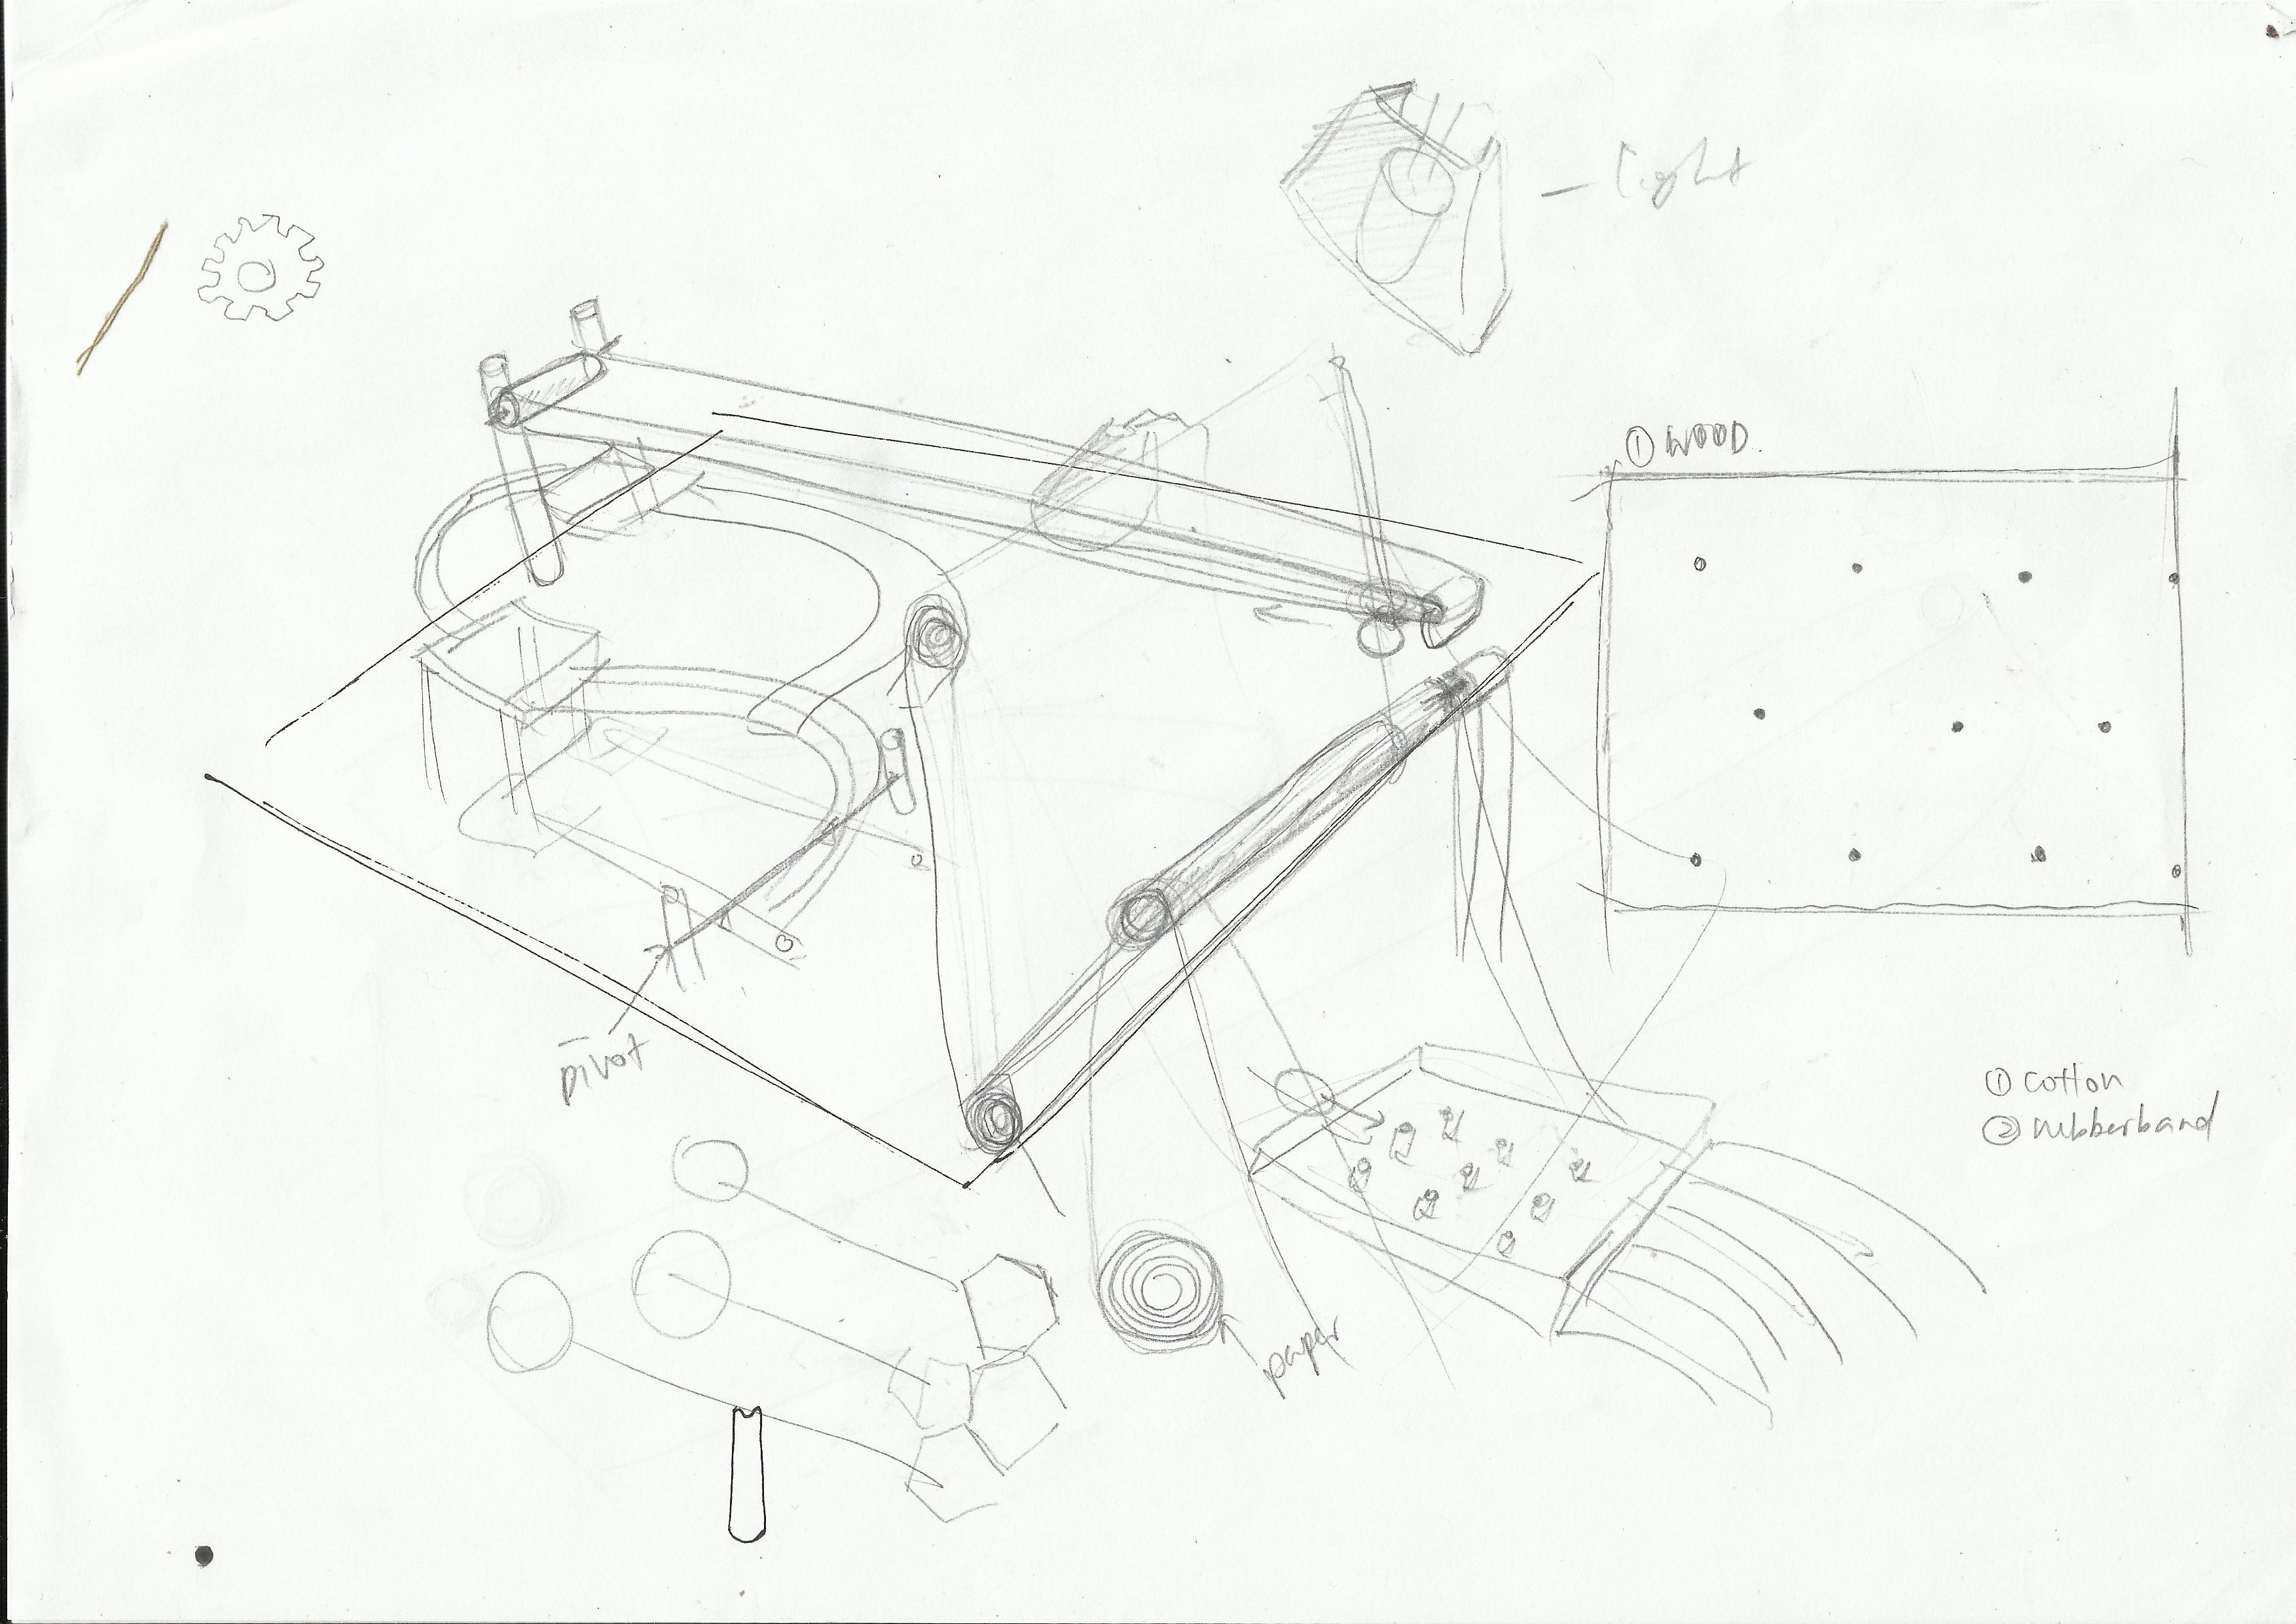 — light
① WOOD.
pivot
① cotton
② rubberband
paper